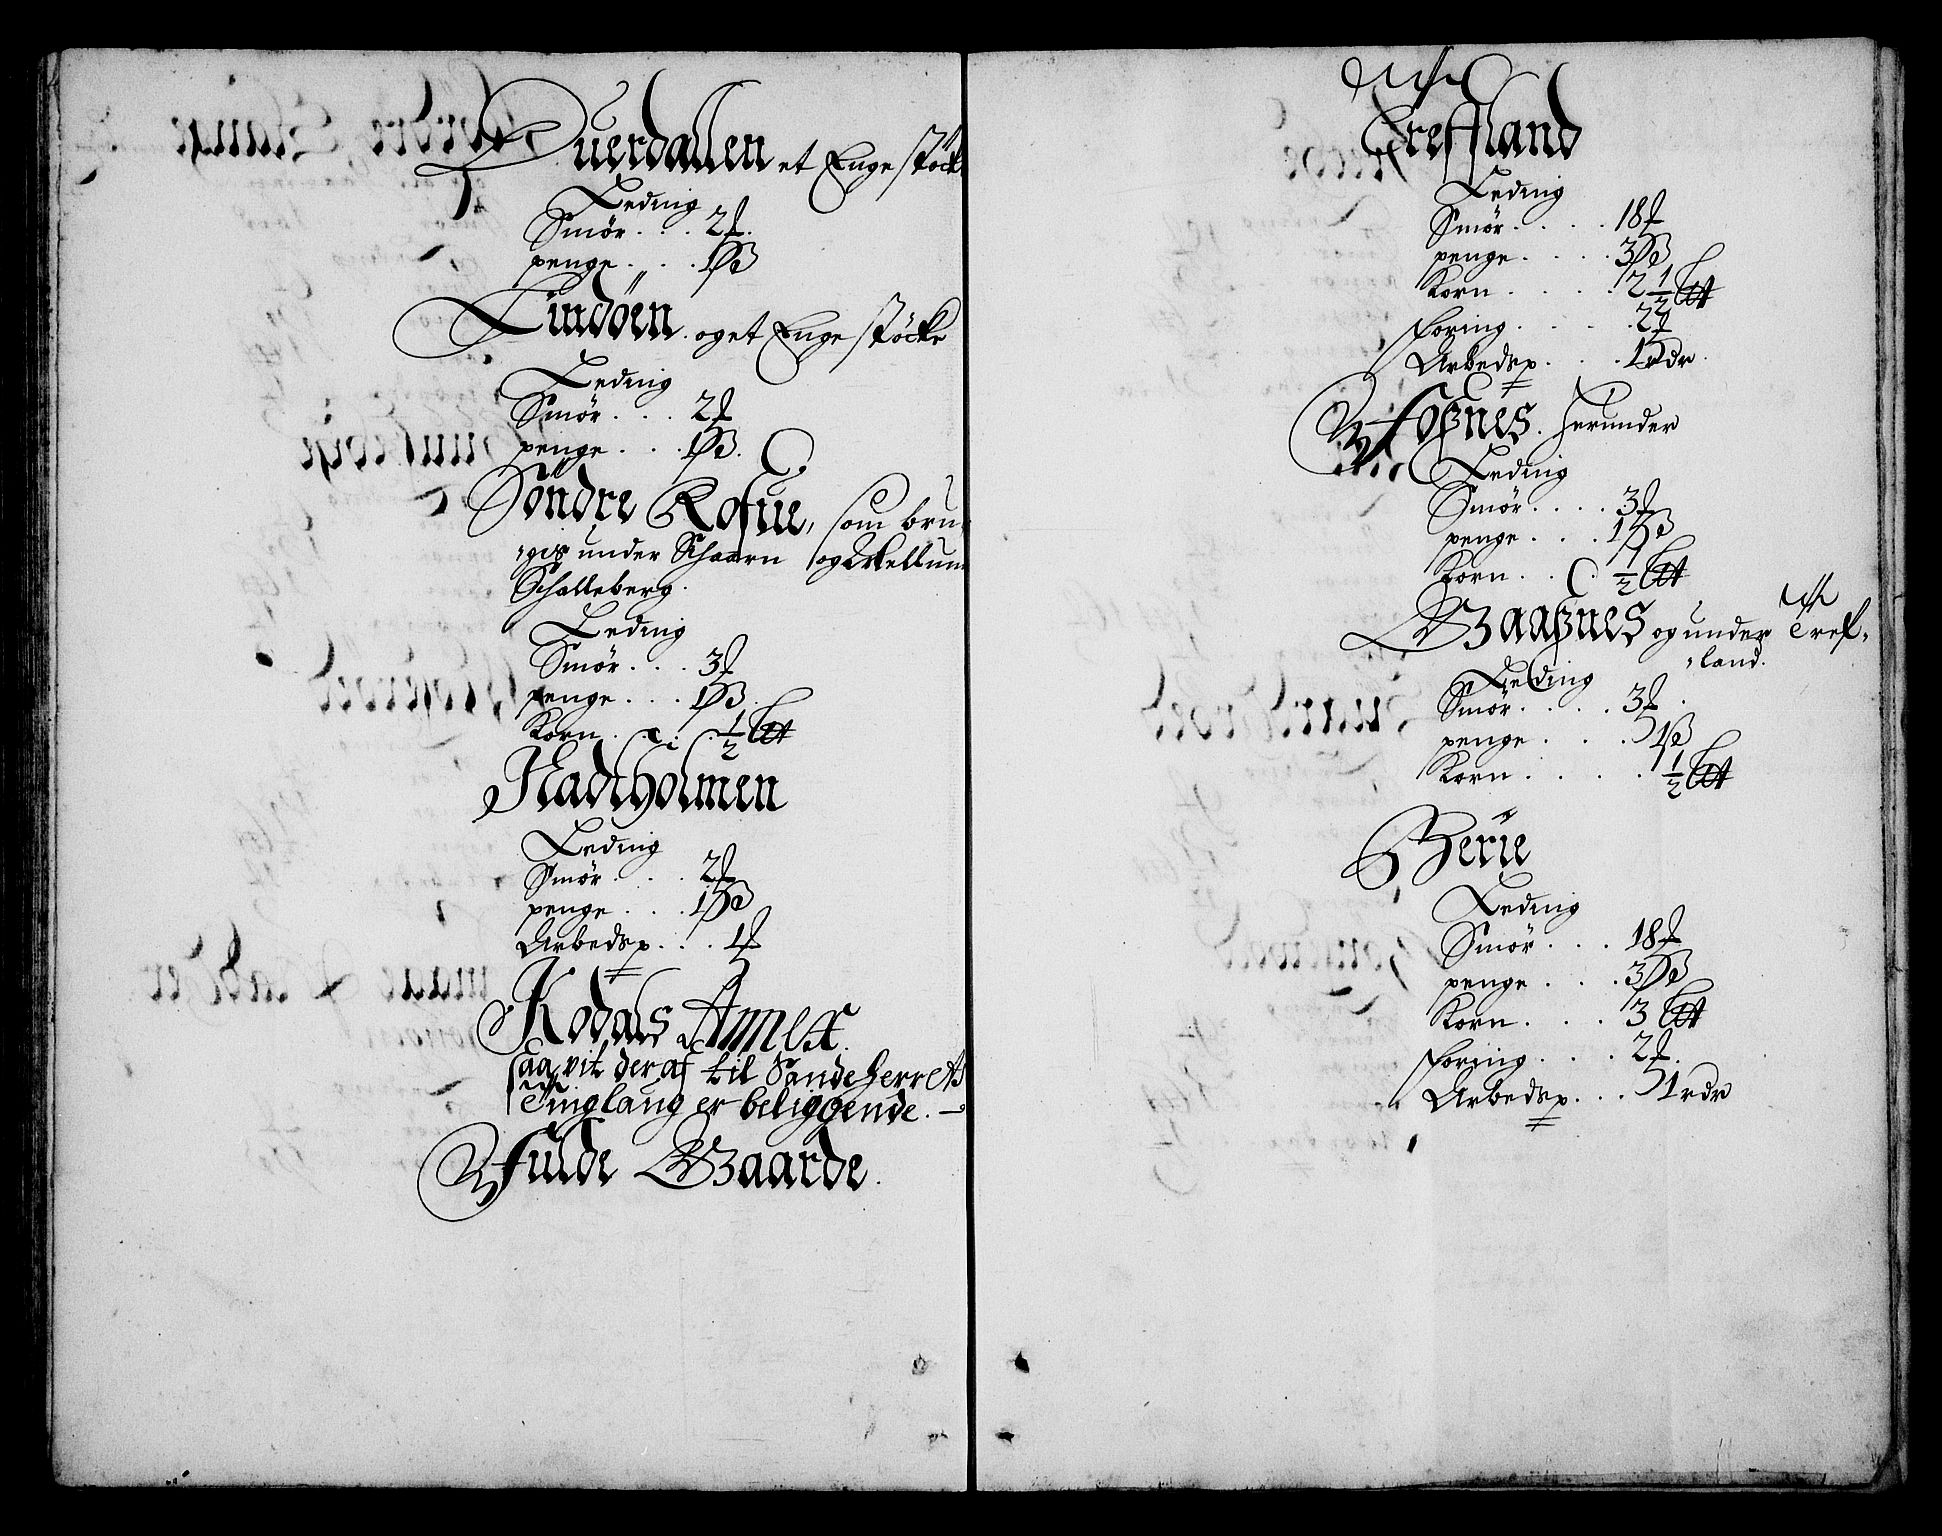 Duerdallen et Enge støcke
Leding
Smør . . . 2 ℔
penge . . . 1 ß
Lindøen oget Enge støcke
Leding
Smør . . . 2 ℔
penge . . . 1 ß
Söndre Rofue, som bru-
-gis under Schaarn og Mellum
Schalleberg.
Leding
Smør . . . 3 ℔
penge . . . 1 ß
Korn . . . ½
Nadtholmen
Leding
Smør . . . 2 ℔
penge . . . 1 ß
Arbedsp. . . 1
Kodals Annex
saavit deraf til Sandeherretz
Tinglaug er beliggende. —
Fulde Gaarde.
Trefsland
Leding
Smør . . . . 18 ℔
penge . . . . 3 ß
Korn . . . . 2½
Foring . . . . 2
Arbedsp. . . . 1 rdr.
Foßnes. herunder
Leding
Smør . . . . 3 ℔
penge . . . 1 ß
Korn . . . ½
Gaaßnes og under Tref-
-land.
Leding
Smør . . . . 3 ℔
penge . . . . 1 ß
Korn . . . . ½
Gerie
Leding
Smør . . . 18 ℔
penge . . . 3 ß
Korn . . . 3
Foring . . . 2
Arbedsp. . . 1 rdr